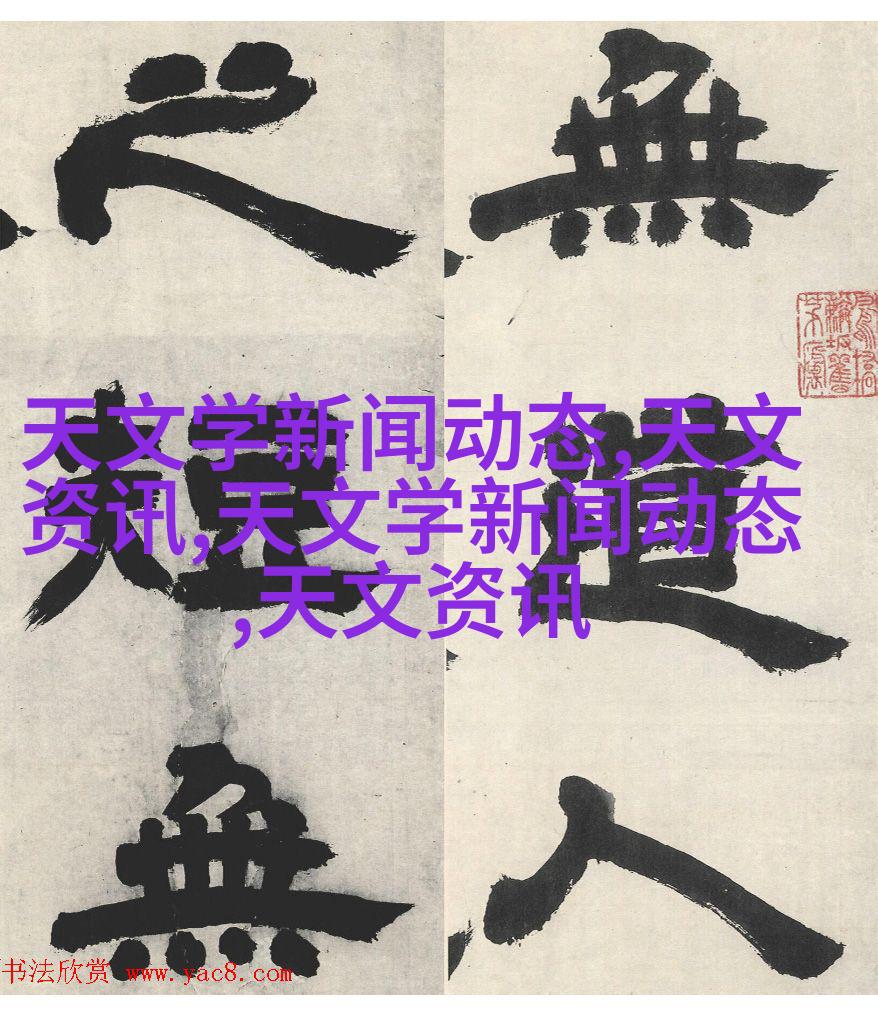 無
道
人
之
短
無
天文学新闻动态,天文
资讯,天文学新闻动态
,天文资讯
书法欣赏 www.yac8.com